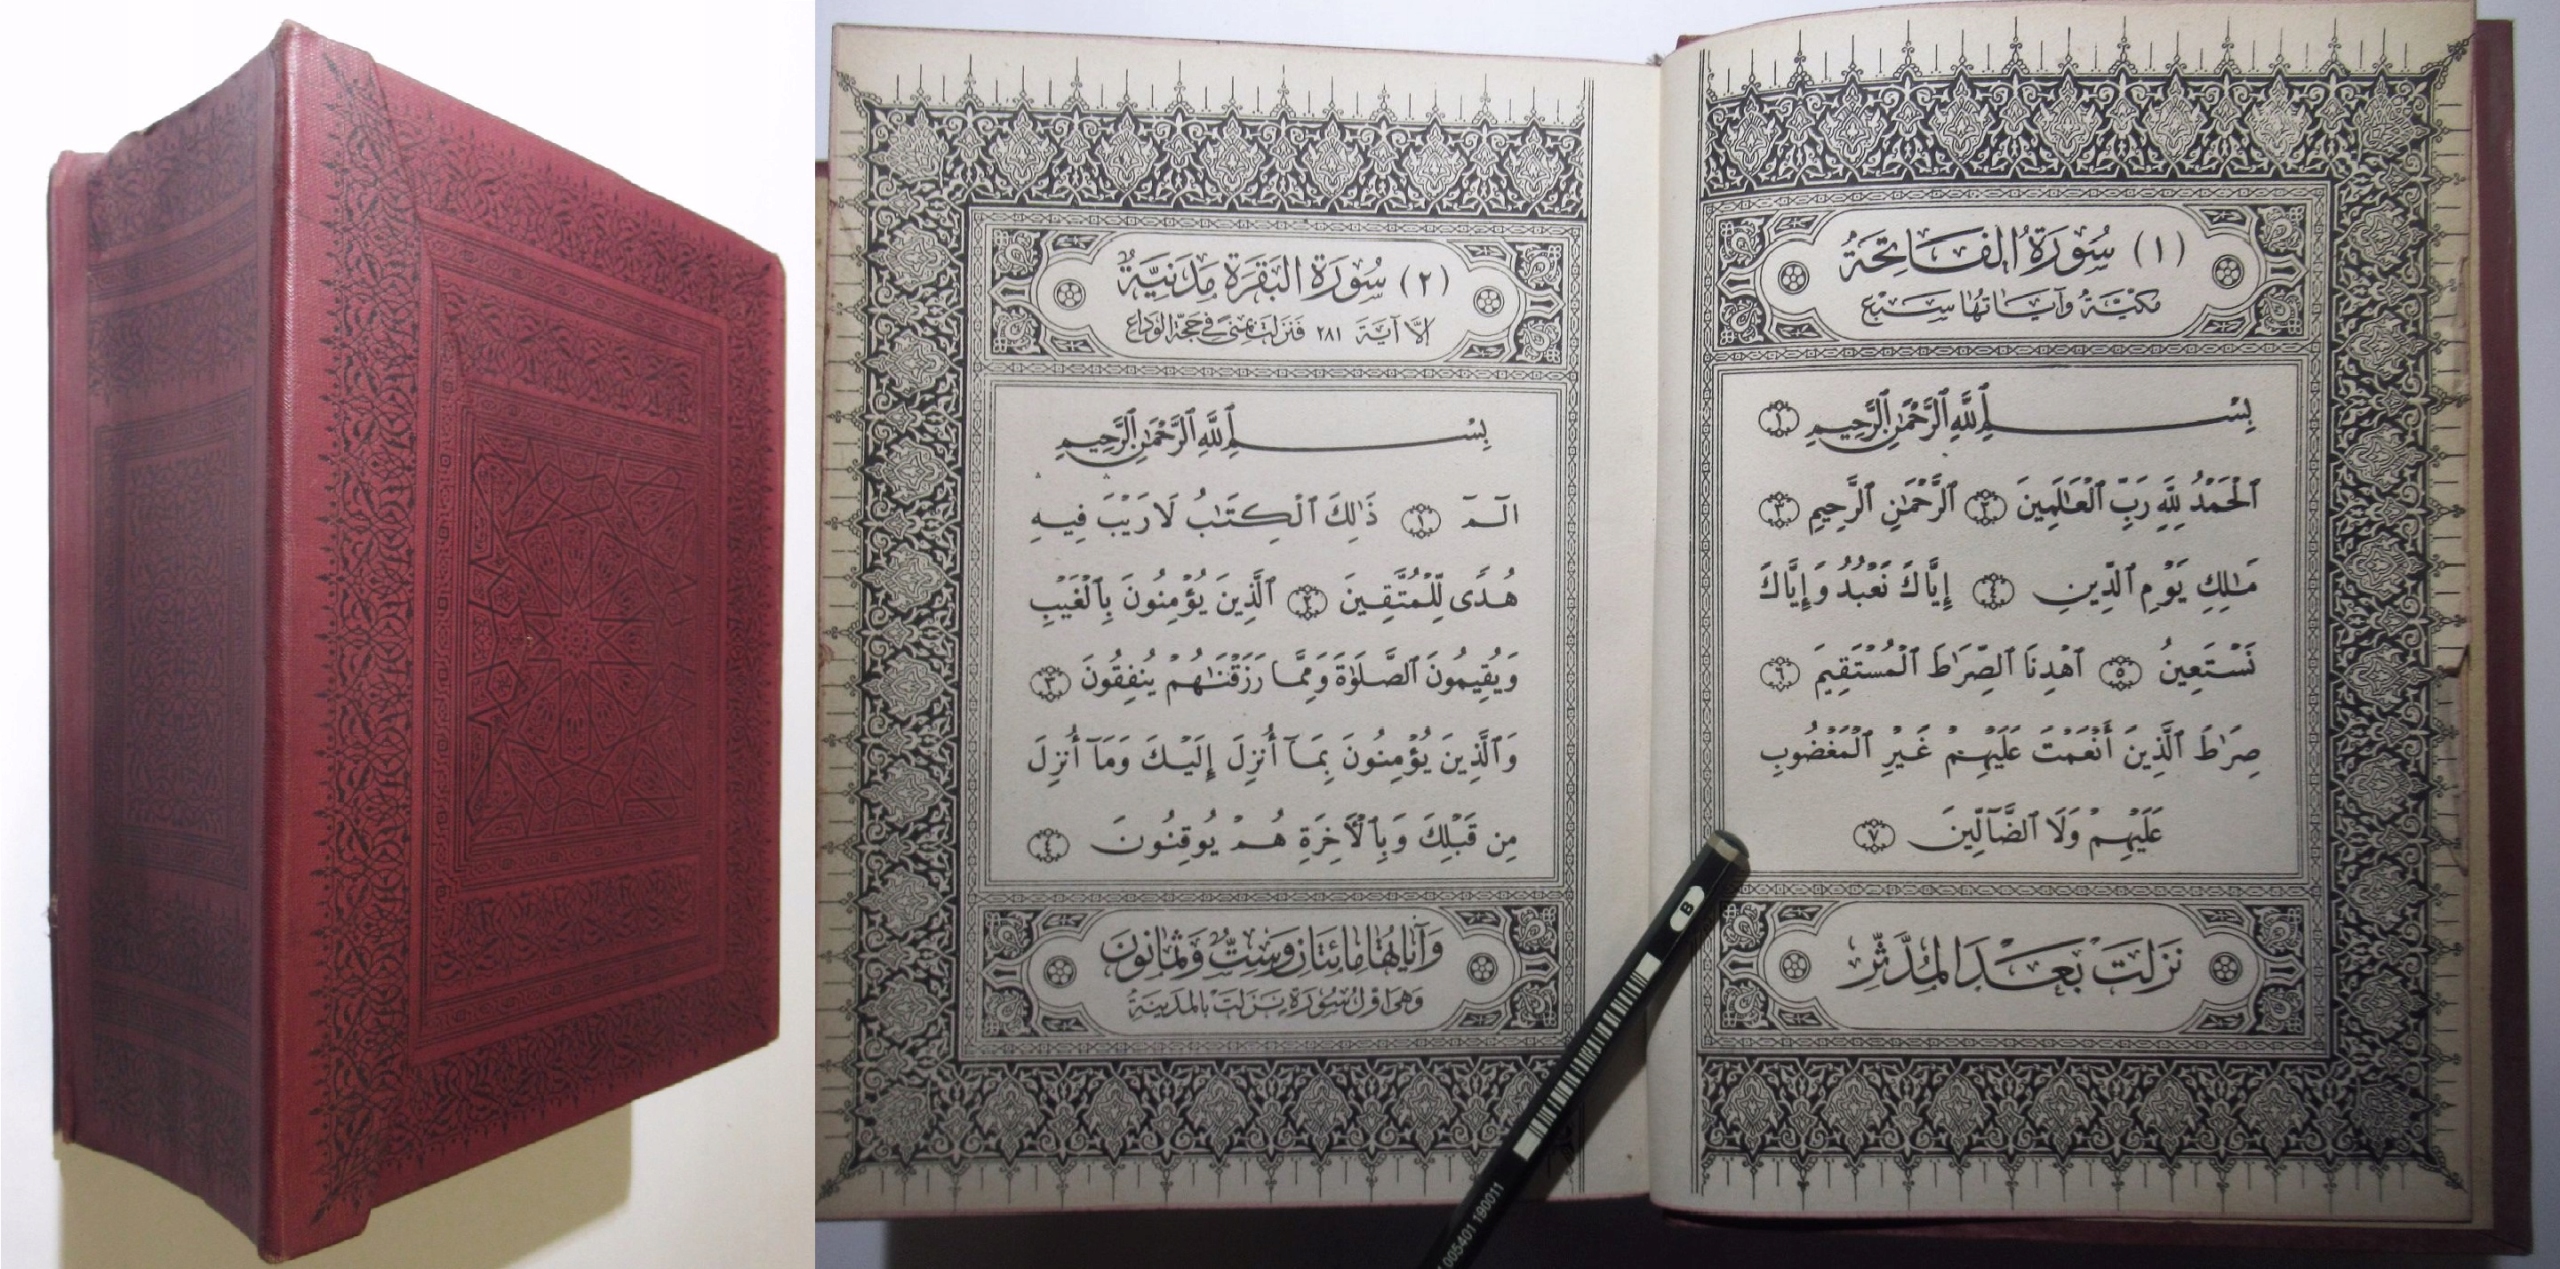 (١) سُورَةُ الفَاتِحَةُ
مَكِيَّةُ وَآيَاتُهَا سَبْعٌ
بِسْمِ ٱللَّهِ ٱلرَّحْمَٰنِ ٱلرَّحِيمِ ١
ٱلْحَمْدُ لِلَّهِ رَبِّ ٱلْعَٰلَمِينَ ٢ ٱلرَّحْمَٰنِ ٱلرَّحِيمِ ٣
مَٰلِكِ يَوْمِ ٱلدِّينِ ٤ إِيَّاكَ نَعْبُدُ وَإِيَّاكَ
نَسْتَعِينُ ٥ ٱهْدِنَا ٱلصِّرَٰطَ ٱلْمُسْتَقِيمَ ٦
صِرَٰطَ ٱلَّذِينَ أَنْعَمْتَ عَلَيْهِمْ غَيْرِ ٱلْمَغْضُوبِ
عَلَيْهِمْ وَلَا ٱلضَّآلِّينَ ٧
نَزَلَتْ بَعْدَ المُدَّثِّر
(٢) سُورَة البَقَرَة مَدَنِيَّةٌ
إلَّا آيَة ٢٨١ فَنَزَلَتْ بِمِنًى فِي حَجَّة الوَدَاع
بِسْمِ ٱللَّهِ ٱلرَّحْمَٰنِ ٱلرَّحِيمِ
الٓمٓ ١ ذَٰلِكَ ٱلْكِتَٰبُ لَا رَيْبَ فِيهِ
هُدًى لِّلْمُتَّقِينَ ٢ ٱلَّذِينَ يُؤْمِنُونَ بِٱلْغَيْبِ
وَيُقِيمُونَ ٱلصَّلَوٰةَ وَمِمَّا رَزَقْنَٰهُمْ يُنفِقُونَ ٣
وَٱلَّذِينَ يُؤْمِنُونَ بِمَآ أُنزِلَ إِلَيْكَ وَمَآ أُنزِلَ
مِن قَبْلِكَ وَبِٱلْأَخِرَةِ هُمْ يُوقِنُونَ ٤
وَآيَاتُهَا مَائِتَانِ وَسِتٌّ وَثَمَانُونَ
وَهِيَ أَوَّلُ سُورَةٍ نَزَلَتْ بِالمَدِينَةِ
B
005401 190011